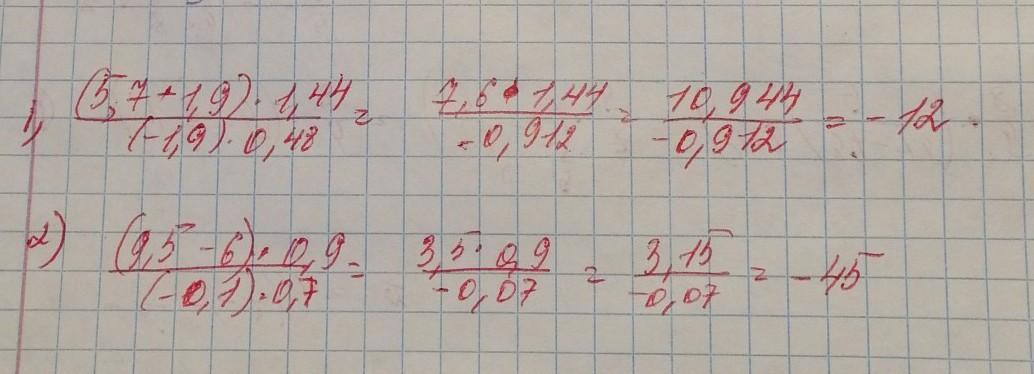 1, (5,7+1,9)·1,44 / (-1,9)·0,48 = 7,6·1,44 / -0,912 = 10,944 / -0,912 = -12.
2) (9,5-6)·0,9 / (-0,1)·0,7 = 3,5·0,9 / -0,07 = 3,15 / -0,07 = -45